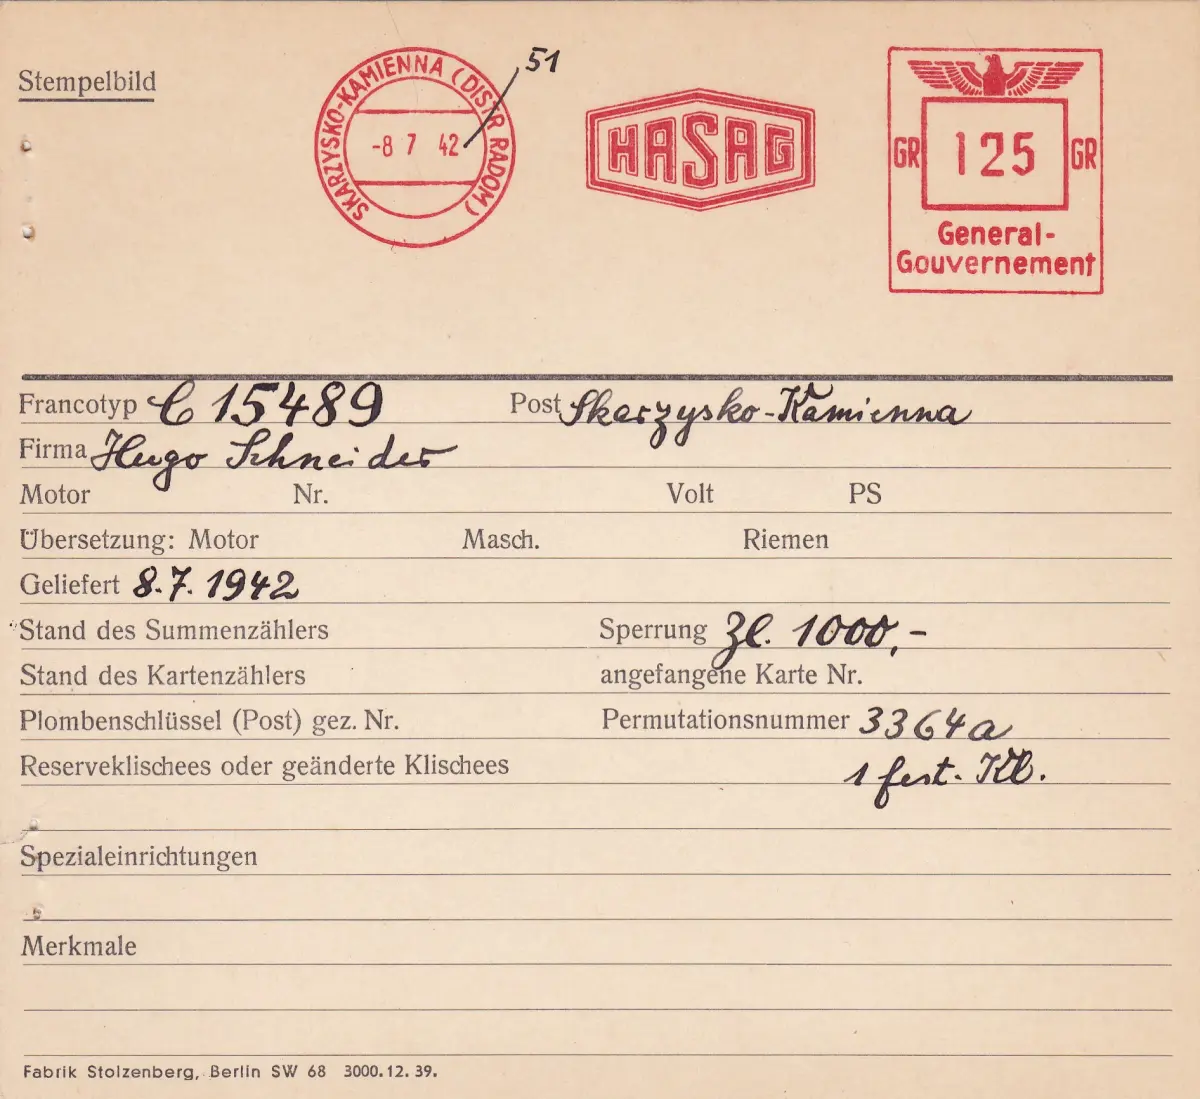 Stempelbild
SKARZYSKO-KAMIENNA (DISTR RADOM)
-8 7 42
51
HASAG
GR 125 GR
General-
Gouvernement
Francotyp C 15489 Post Skarzysko-Kamienna
Firma Hugo Schneider
Motor Nr. Volt PS
Übersetzung: Motor Masch. Riemen
Geliefert 8.7.1942
Stand des Summenzählers Sperrung Zl. 1000,-
Stand des Kartenzählers angefangene Karte Nr.
Plombenschlüssel (Post) gez. Nr. Permutationsnummer 3364a
Reserveklischees oder geänderte Klischees 1 fest. Kl.
Spezialeinrichtungen
Merkmale
Fabrik Stolzenberg, Berlin SW 68 3000.12.39.